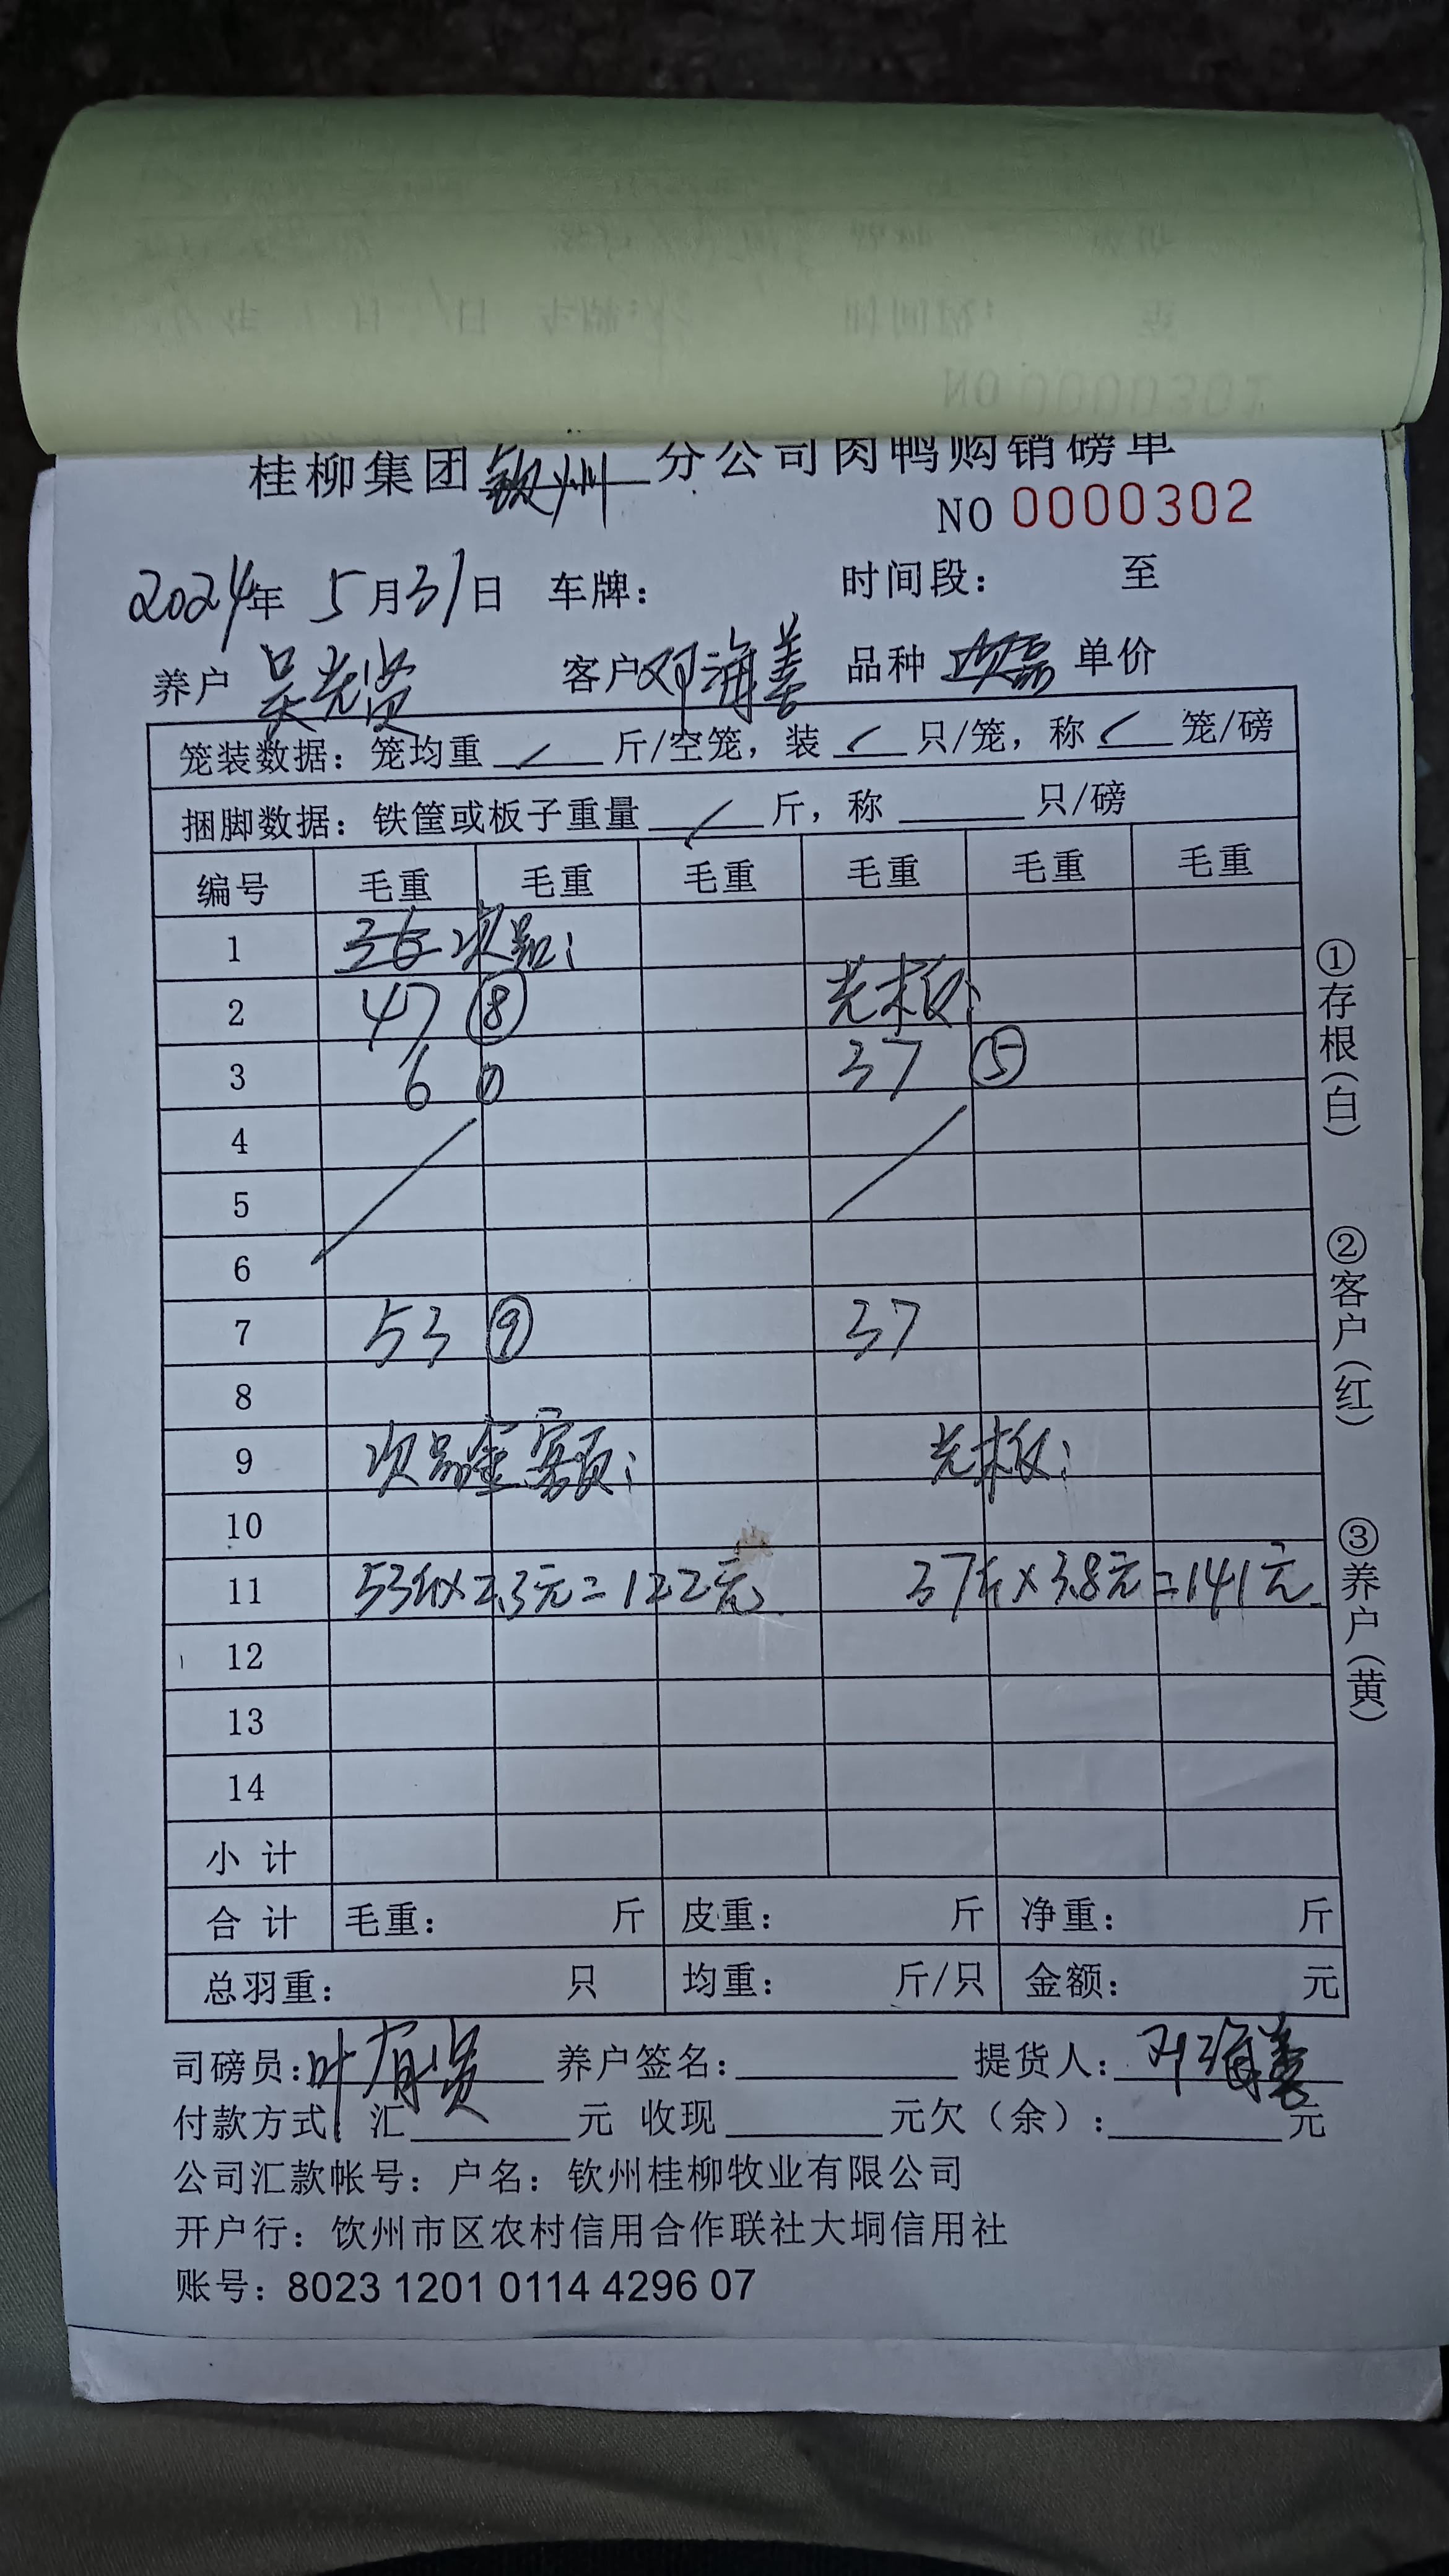 桂柳集团钦州分公司肉鸭购销磅单
NO 0000302
2024年 5月31日 车牌： 时间段： 至
养户 吴光贤 客户 邓海善 品种 次品 单价
笼装数据：笼均重 斤/空笼，装 只/笼，称 笼/磅
捆脚数据：铁筐或板子重量 斤，称 只/磅
编号 毛重 毛重 毛重 毛重 毛重 毛重
1 次品：
2 47 ⑧ 光板：
3 6 0 37 ⑤
4
5
6
7 53 ⑨ 37
8
9 次品金额： 光板：
10
11 53斤×2.3元=122元 37斤×3.8元=141元
12
13
14
小计
合计 毛重： 斤 皮重： 斤 净重： 斤
总羽重： 只 均重： 斤/只 金额： 元
司磅员：叶有贤 养户签名： 提货人：邓海善
付款方式 汇 元 收现 元欠（余）： 元
公司汇款帐号：户名：钦州桂柳牧业有限公司
开户行：钦州市区农村信用合作联社大垌信用社
账号：8023 1201 0114 4296 07
①存根（白）
②客户（红）
③养户（黄）